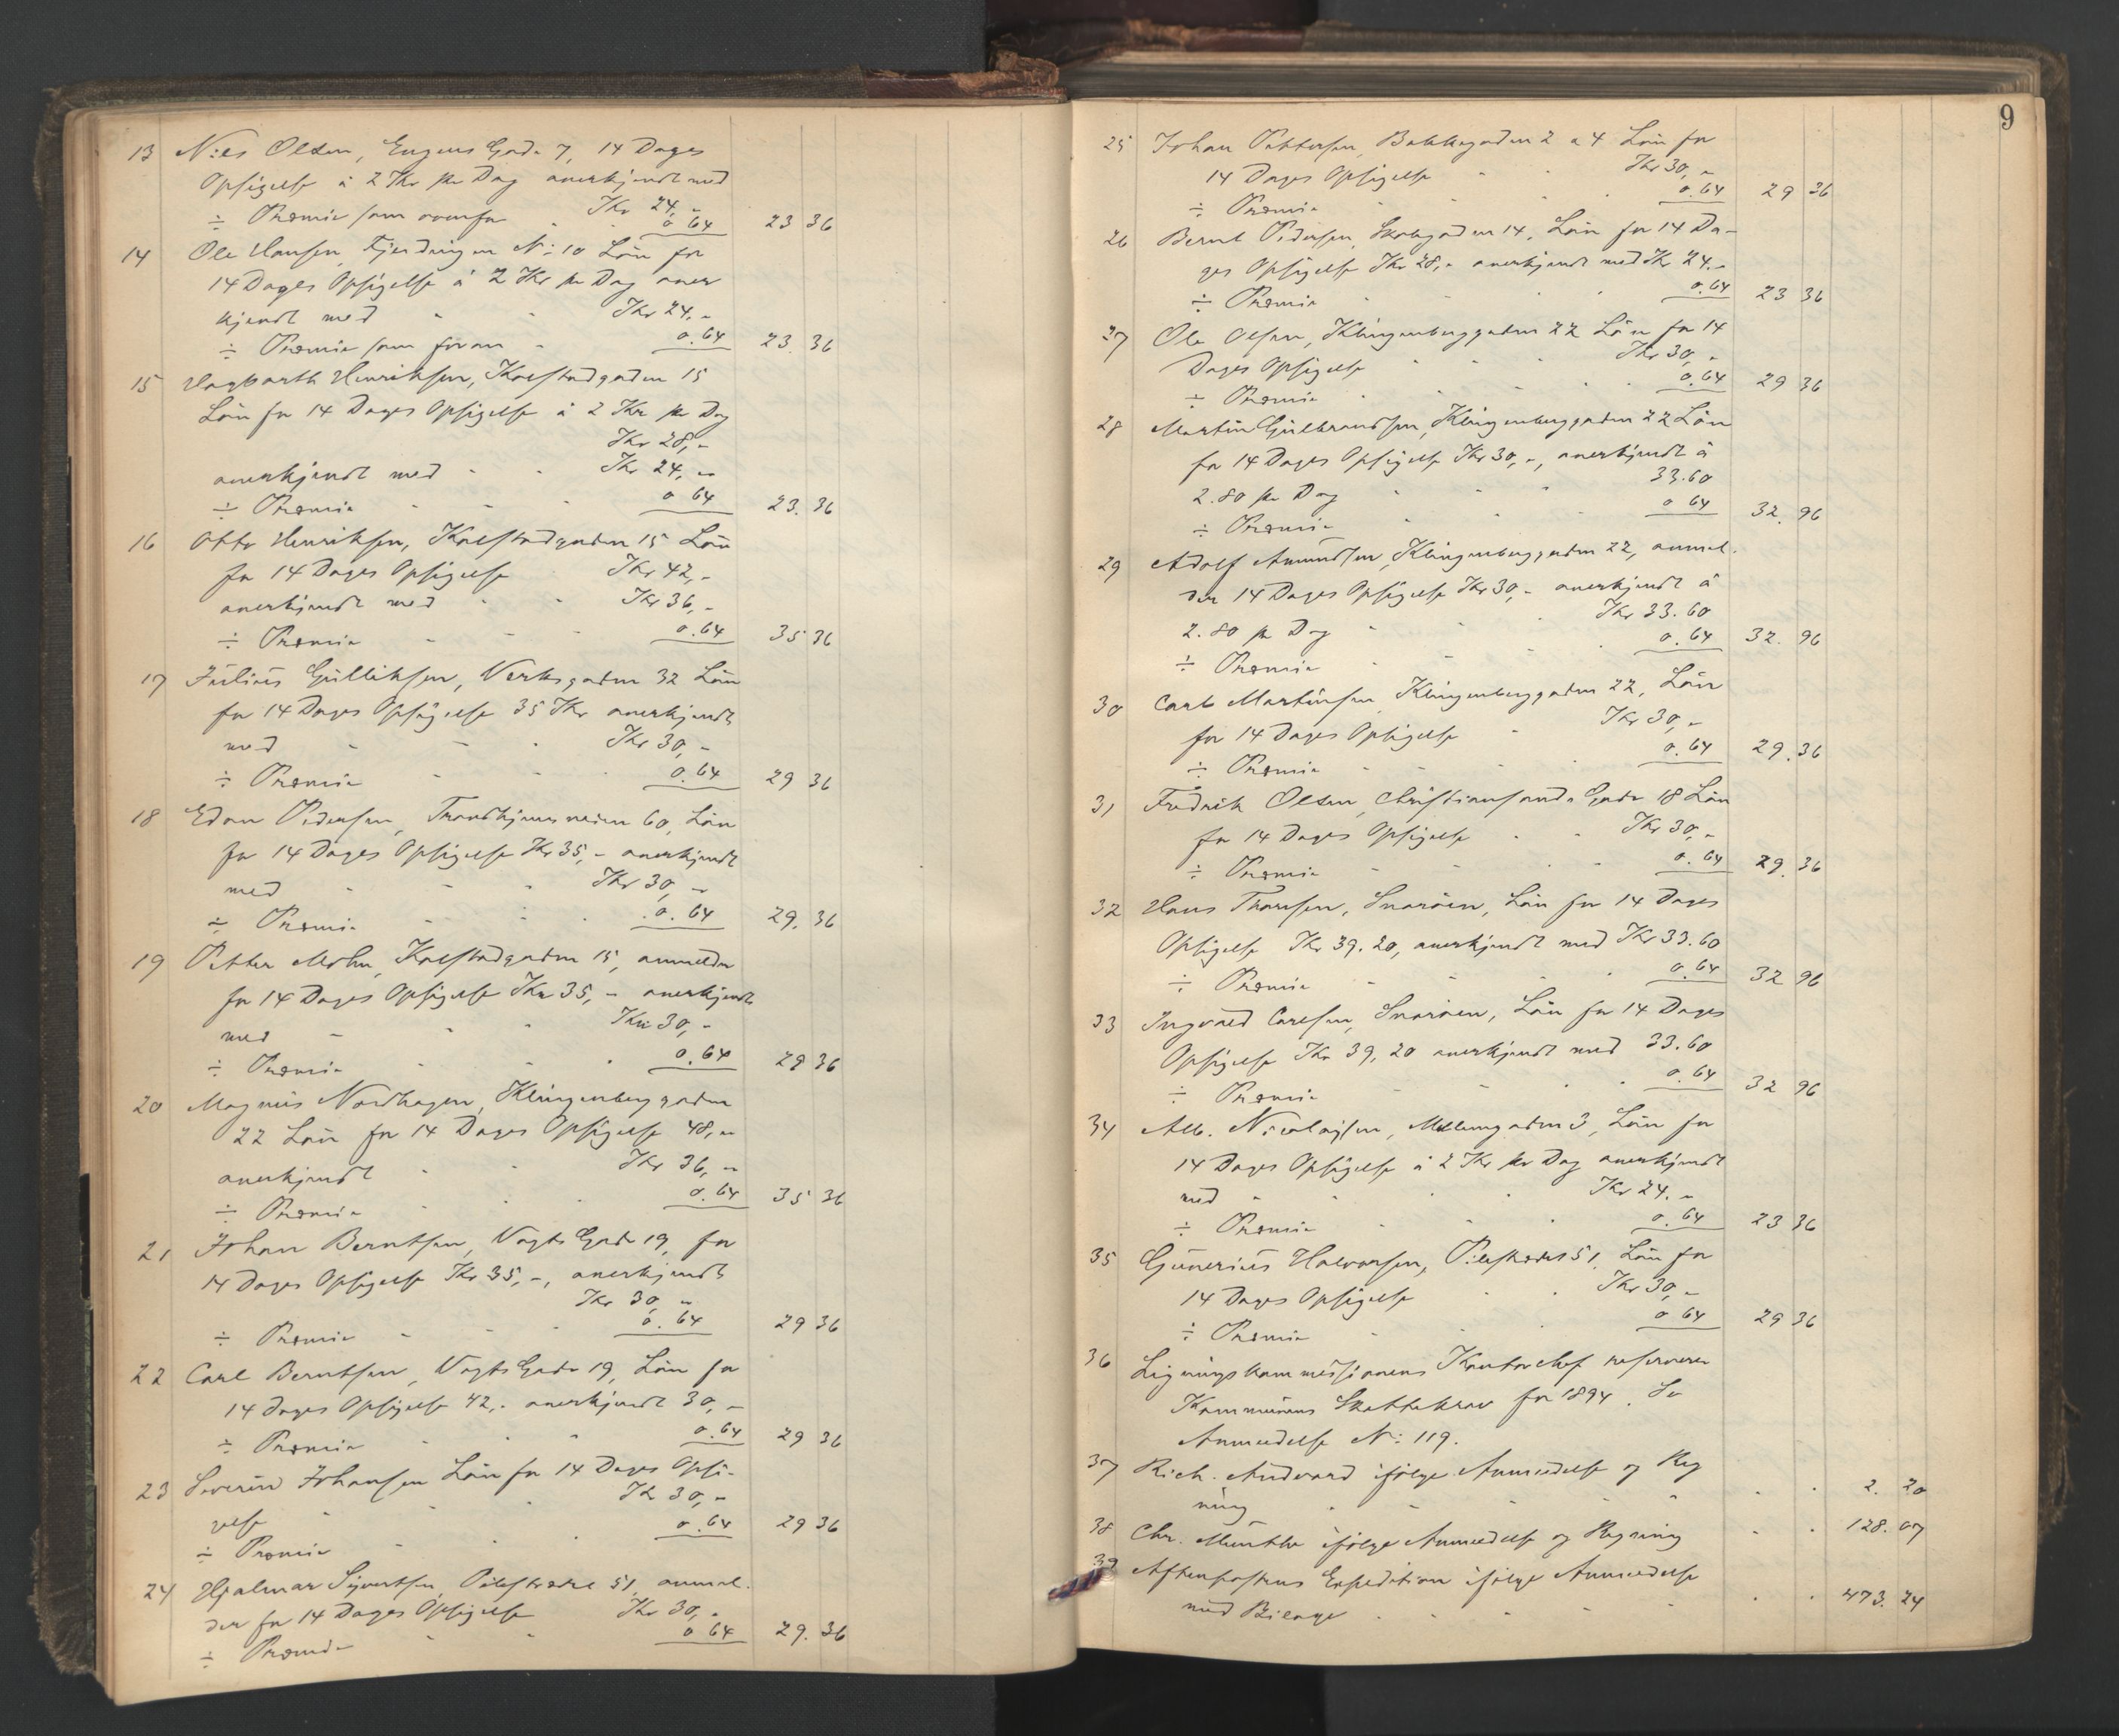 13 Nils Olsen, Eugens Gade 7, 14 Dages
Opsigelse à 2 Kr pr Dag anerkjendt med
Kr 24,-
÷ Præmie som ovenfor 0 64 23 36
14 Ole Hansen, Fjerdingen No 10 Løn for
14 Dages Opsigelse à 2 Kr pr Dag aner
kjendt med Kr 24.-
÷ Præmie som foran 0.64 23. 36
15 Hagbarth Henriksen, Kalstadgaden 15
Løn for 14 Dages Opsigelse à 2 Kr pr Dag
Kr 28,-
anerkjendt med Kr 24,-
÷ Præmie 0 64 23. 36
16 Otto Henriksen, Kalstadgaden 15 Løn
for 14 Dages Opsigelse Kr 42,-
anerkjendt med Kr 36,-
÷ Præmie 0.64 35 36
17 Julius Gulliksen, Verksgaden 32 Løn
for 14 Dages Opsigelse 35 Kr anerkjendt
med Kr 30,-
÷ Præmie 0.64 29 36
18 Edon Pedersen, Trondhjemsveien 60, Løn
for 14 Dages Opsigelse Kr 35,- anerkjendt
med Kr 30,-
÷ Præmie 0.64 29. 36
19 Petter Mohn, Kalstadgaden 15, anmelder
for 14 Dages Opsigelse Kr 35,- anerkjendt
med Kr 30,-
÷ Præmie 0.64 29 36
20 Magnus Nordhagen, Klingenberggaden
22 Løn for 14 Dages Opsigelse 48,-
anerkjendt Kr 36,-
÷ Præmie 0.64 35 36
21 Johan Berntsen, Vogts Gade 19, for
14 Dages Opsigelse Kr 35,-, anerkjendt
Kr 30,-
÷ Præmie 0.64 29 36
22 Carl Berntsen, Vogts Gade 19, Løn for
14 Dages Opsigelse 42,- anerkjendt 30,-
÷ Præmie 0.64 29 36
23 Severin Johansen Løn for 14 Dages Opsi-
gelse Kr 30,-
÷ Præmie 0.64 29 36
24 Hjalmar Syvertsen, Pilestrædet 51, anmel.
der for 14 Dages Opsigelse Kr 30,-
÷ Præmie 0 64 29. 36
9
25 Johan Pettersen, Bakkegaden 2 a 4 Løn for
14 Dages Opsigelse Kr 30,-
÷ Præmie 0.64 29 36
26 Bernt Pedersen, Skolegaden 14, Løn for 14 Da-
ges Opsigelse Kr 28,- anerkjendt med Kr 24.-
÷ Præmie 0.64 23 36
27 Ole Olsen, Klingenberggaden 22 Løn for 14
Dages Opsigelse Kr 30,-
÷ Præmie 0.64 29 36
28 Martin Gulbrandsen, Klingenberggaden 22 Løn
for 14 Dages Opsigelse Kr 30,-, anerkjendt à
2.80 pr Dag 33.60
÷ Præmie 0 64 32. 96
29 Adolf Amundsen, Klingenberggaden 22, anmel.
der 14 Dages Opsigelse Kr 30,- anerkjendt à
2.80 pr Dag Kr 33.60
÷ Præmie 0.64 32. 96
30 Carl Martinsen, Klingenberggaden 22, Løn
for 14 Dages Opsigelse Kr 30,-
÷ Præmie 0.64 29.36
31 Fredrik Olsen, Christiansands Gade 18 Løn
for 14 Dages Opsigelse Kr 30,-
÷ Præmie 0.64 29.36
32 Hans Thoresen, Snarøen, Løn for 14 Dages
Opsigelse Kr 39.20, anerkjendt med Kr 33.60
÷ Præmie 0.64 32 96
33 Ingvald Carlsen, Snarøen, Løn for 14 Dages
Opsigelse Kr 39,20 anerkjendt med 33.60
÷ Præmie 0.64 32 96
34 Alb. Nicolaysen, Møllergaden 3, Løn for
14 Dages Opsigelse à 2 Kr pr Dag anerkjendt
med Kr 24.-
÷ Præmie 0.64 23 36
35 Gunerius Halvorsen, Pilestrædet 51, Løn for
14 Dages Opsigelse Kr 30,-
÷ Præmie 0 64 29 36
36 Ligningskommissionens Kontorchef reserverer
Kommunens Skattekrav for 1894. Se
Anmeldelse No 119.
37 Rich. Andvord ifølge Anmeldelse og Reg
ning 2. 20
38 Chr. Munthe ifølge Anmeldelse og Regning 128.07
39 Aftenpostens Expedition ifølge Anmeldelse
med Bilage 473. 24